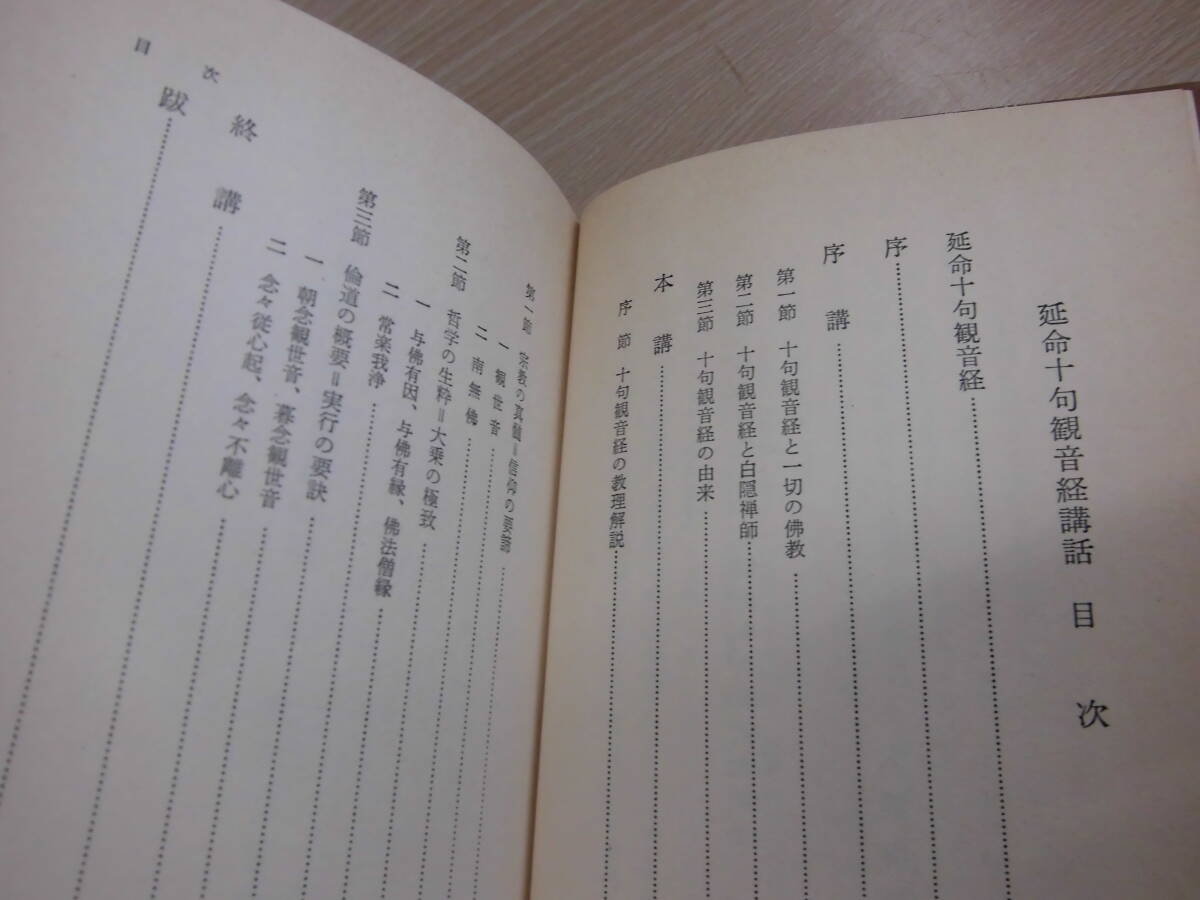 延命十句観音経講話 目次
延命十句観音経
序
序講
第一節 十句観音経と一切の佛教
第二節 十句観音経と白隠禅師
第三節 十句観音経の由来
本講
序節 十句観音経の教理解説
第一節 宗教の真髄=信仰の要諦
一 観世音
二 南無佛
第二節 哲学の生粋=大乗の極致
一 与佛有因、与佛有縁、佛法僧縁
二 常楽我浄
第三節 倫道の概要=実行の要訣
一 朝念観世音、暮念観世音
二 念々従心起、念々不離心
終講
跋
目次